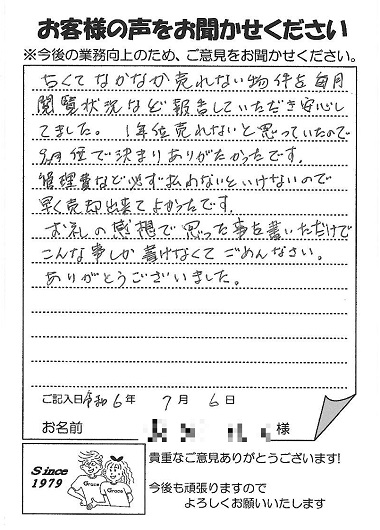 お客様の声をお聞かせください
※今後の業務向上のため、ご意見をお聞かせください。
古くてなかなか売れない物件を毎月
閲覧状況など報告していただき安心し
てました。 1年位売れないと思っていたので
9ヶ月位で決まりありがたかったです。
管理費など必ず払わないといけないので
早く売却出来てよかったです。
お礼の感想で思った事を書いただけで
こんな事しか書けなくてごめんなさい。
ありがとうございました。
ご記入日 令和 6 年 7 月 6 日
お名前 様
Since
1979
Grace
Grace
貴重なご意見ありがとうございます!
今後も頑張りますので
よろしくお願いいたします